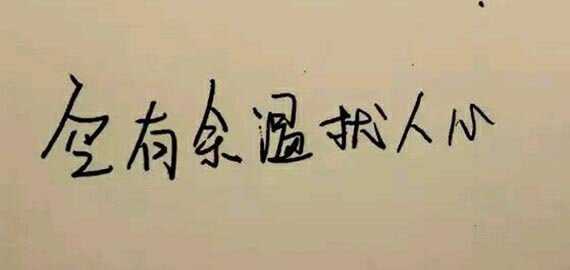 空有余温扰人心